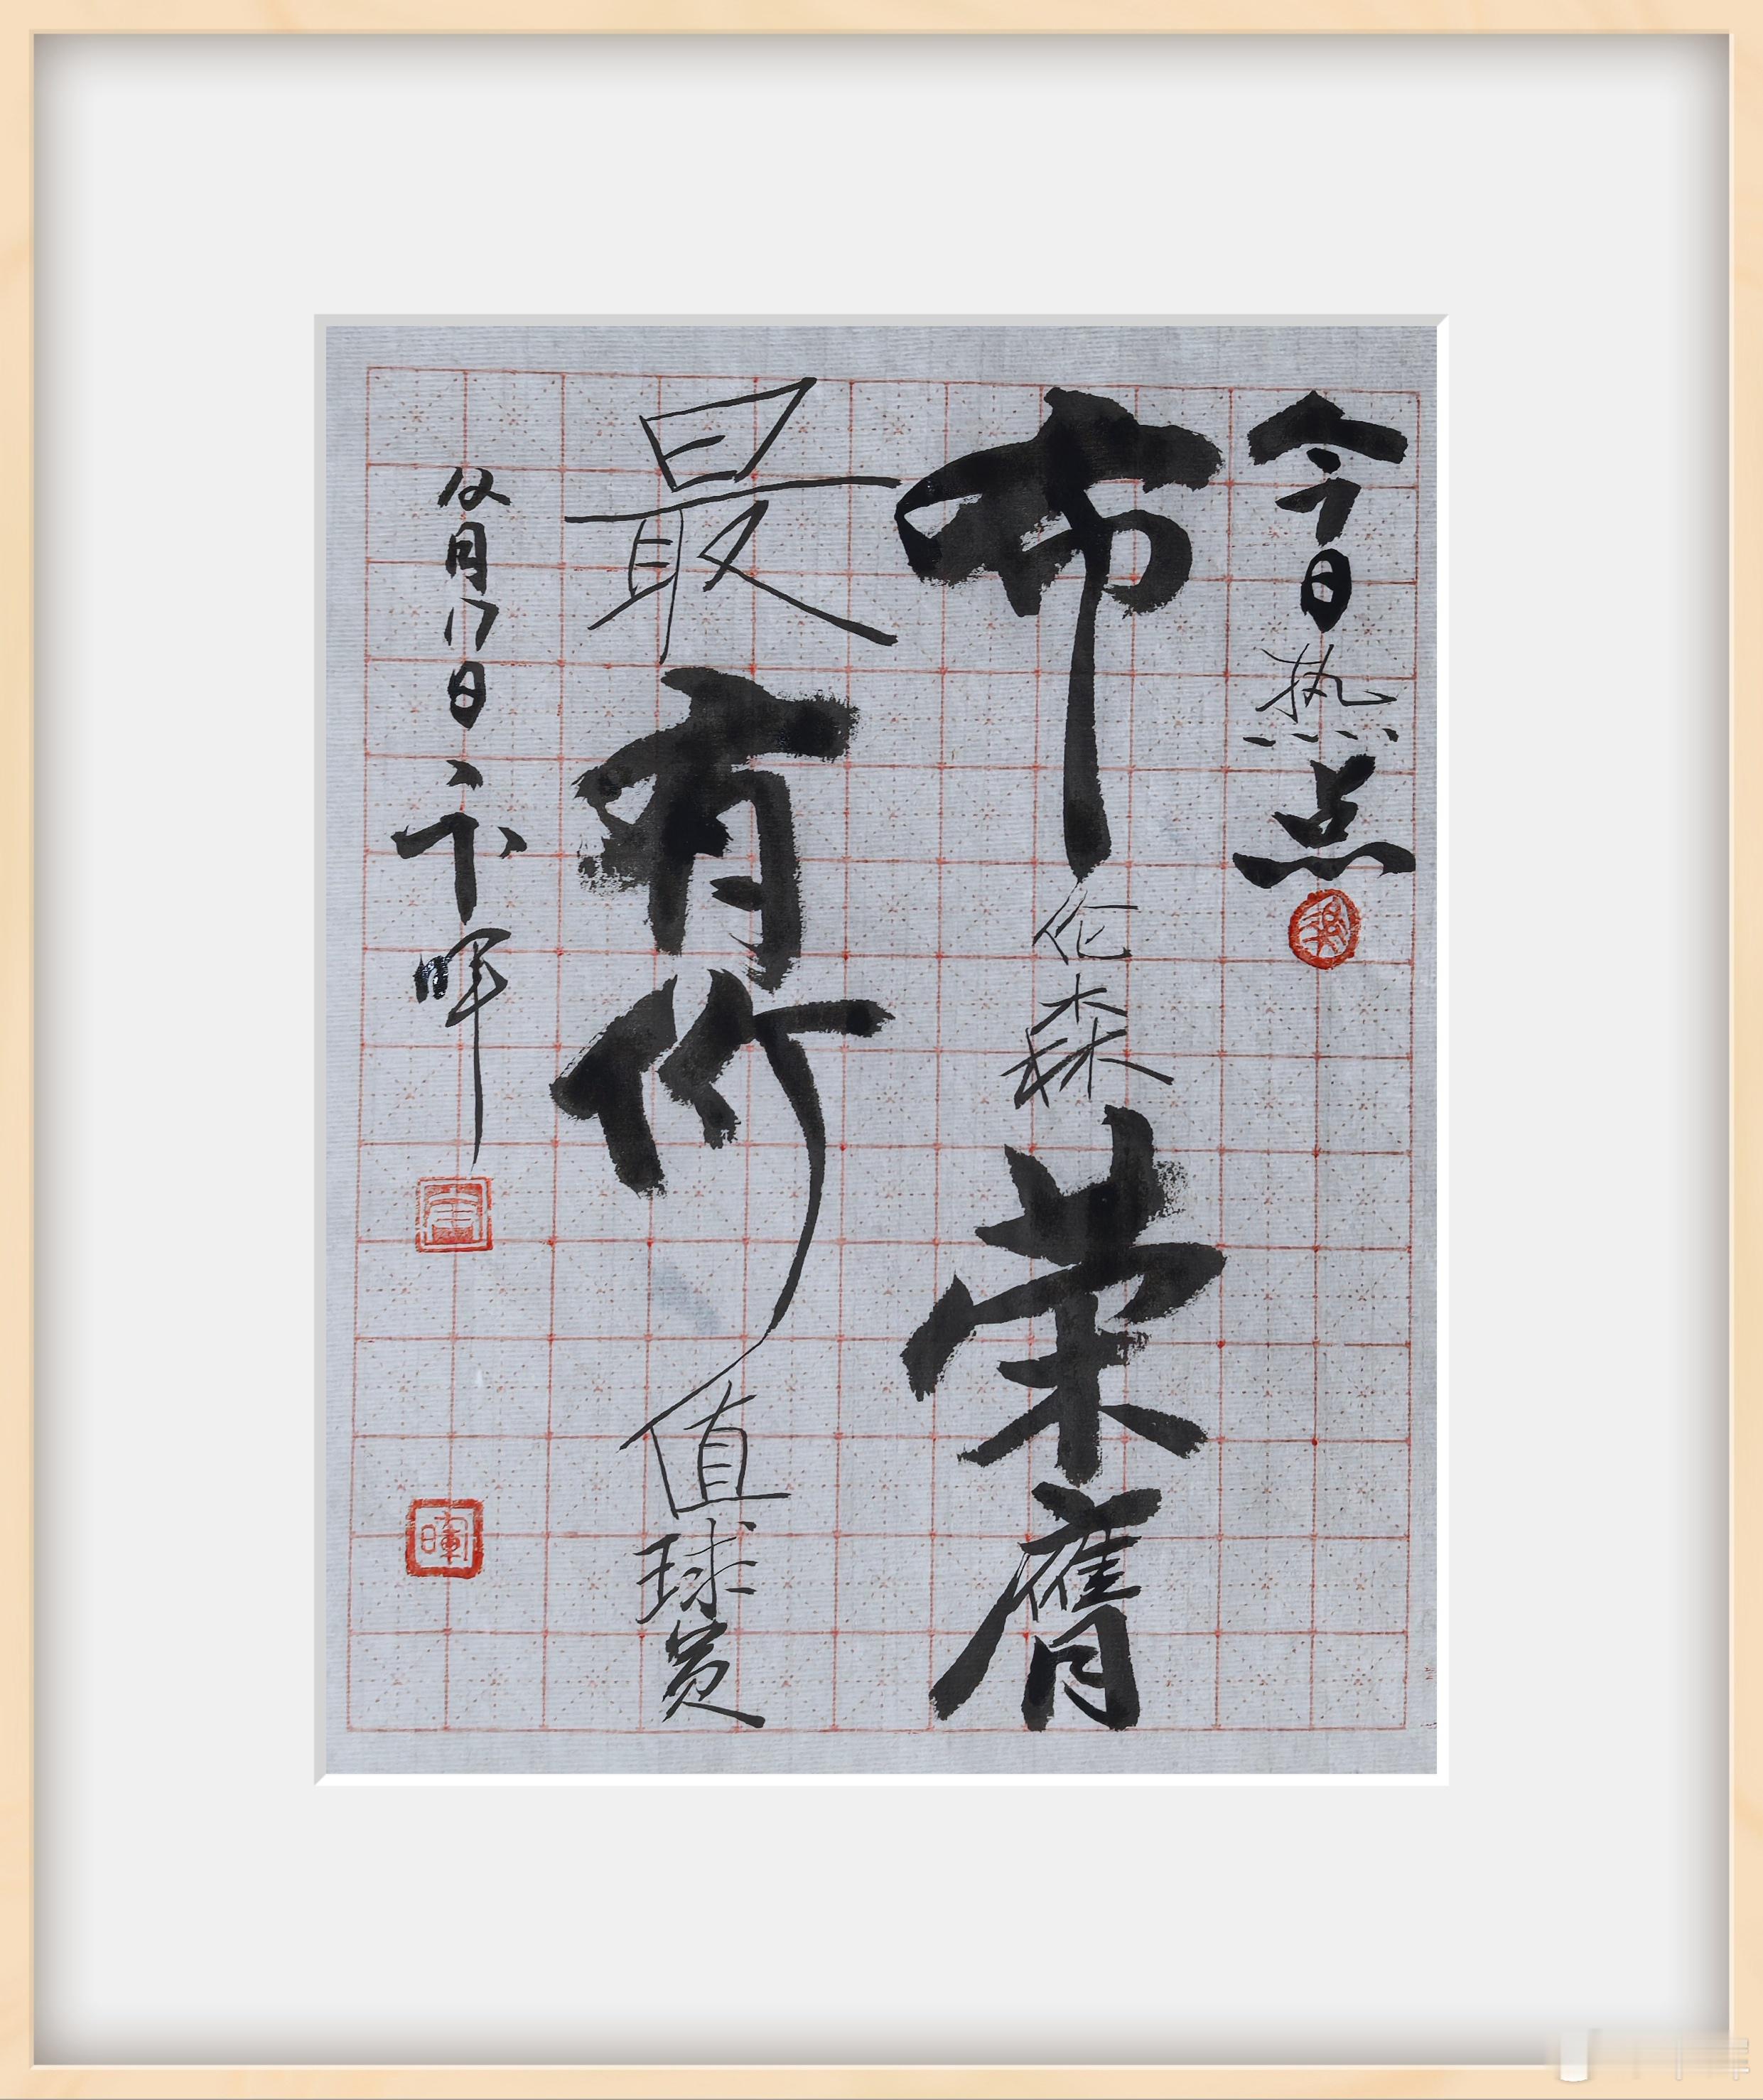 今日热点
布伦森荣膺
最有价值球员
六月17日卞晖
暉